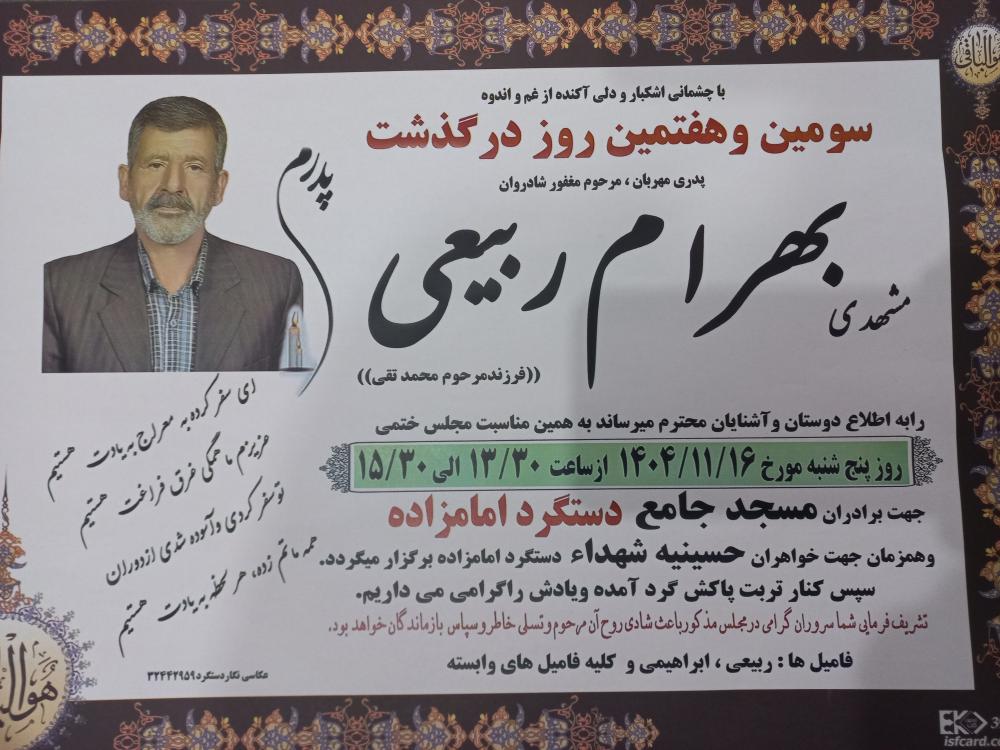 هوالباقی
با چشمانی اشکبار و دلی آکنده از غم و اندوه
سومین و هفتمین روز درگذشت
پدری مهربان ، مرحوم مغفور شادروان
مشهدی بهرام ربیعی
((فرزند مرحوم محمد تقی))
پدرم
رابه اطلاع دوستان وآشنایان محترم میرساند به همین مناسبت مجلس ختمی
روز پنج شنبه مورخ ۱۴۰۴/۱۱/۱۶ ازساعت ۱۳/۳۰ الی ۱۵/۳۰
جهت برادران مسجد جامع دستگرد امامزاده
وهمزمان جهت خواهران حسینیه شهداء دستگرد امامزاده برگزار میگردد.
سپس کنار تربت پاکش گرد آمده ویادش راگرامی می داریم.
تشریف فرمایی شما سروران گرامی در مجلس مذکور باعث شادی روح آن مرحوم و تسلی خاطر و سپاس بازماندگان خواهد بود.
فامیل ها : ربیعی ، ابراهیمی و کلیه فامیل های وابسته
ای سفر کرده به معراج به یادت هستیم
عزیزم ما همگی غرق فراغت هستیم
تو سفر کردی و آسوده شدی از دوران
همه ماتم زده، هر لحظه به یادت هستیم
عکاسی نگار دستگرد ۳۲۴۴۲۹۵۹
هوالباقی
EK
isfcard.c